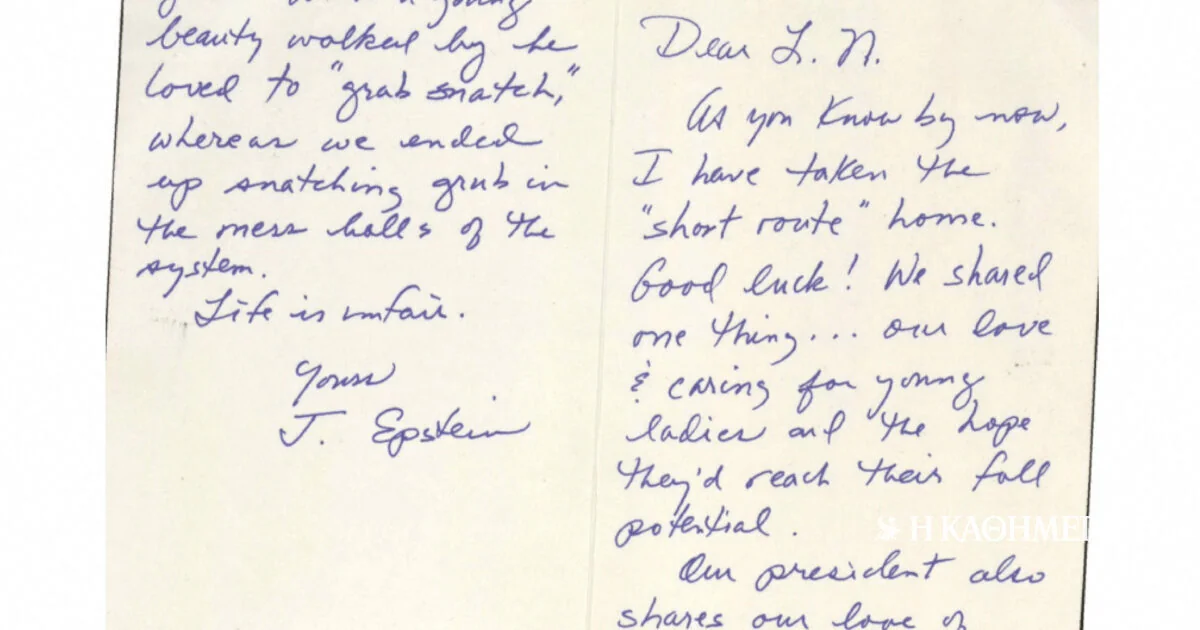 a young
beauty walked by he
loved to "grab snatch,"
whereas we ended
up snatching grub in
the mess halls of the
system.
Life is unfair.
Yours
J. Epstein
Dear L. N.
As you know by now,
I have taken the
"short route" home.
Good luck! We shared
one thing... our love
& caring for young
ladies and the hope
they'd reach their full
potential.
Our president also
shares our love of
Η ΚΑΘΗΜΕ